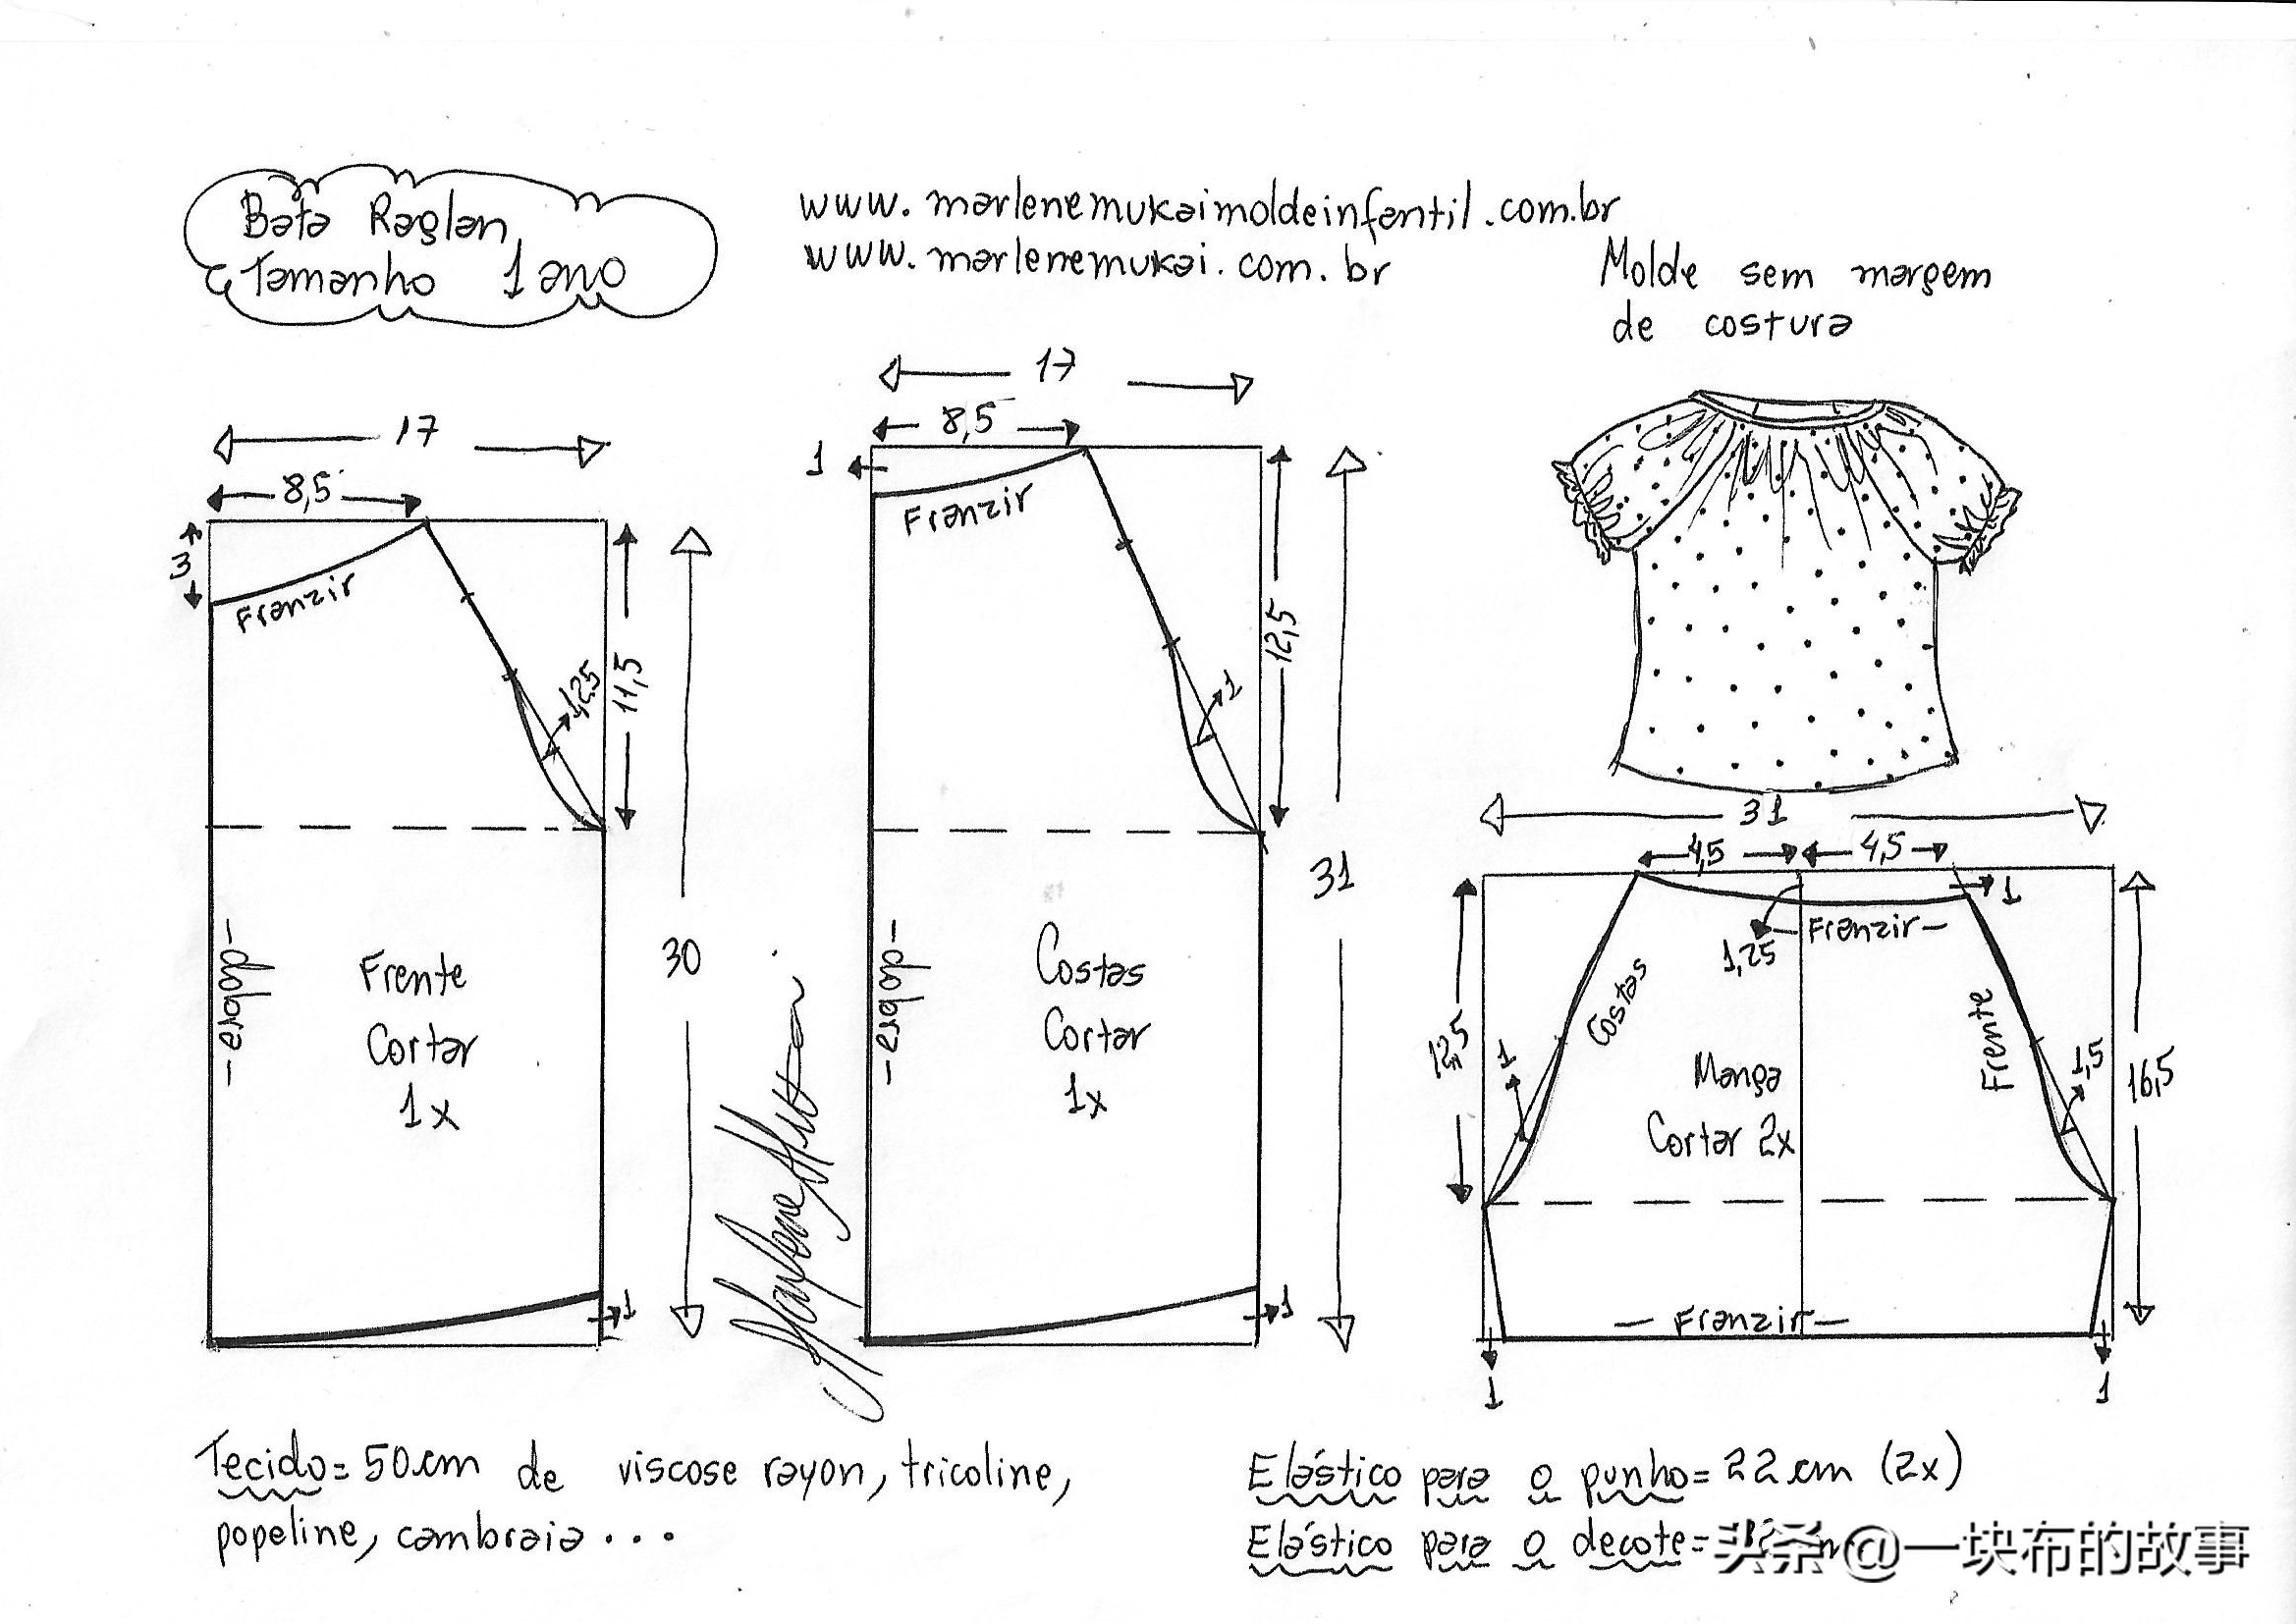 Bata Raglan
Tamanho 1 ano
www.marlenemukaimoldeinfantil.com.br
www.marlenemukai.com.br
Molde sem margem
de costura
17
8,5
3
Franzir
1,25
11,5
30
-dobra-
Frente
Cortar
1x
1
17
8,5
1
Franzir
1
12,5
31
-dobra-
Costas
Cortar
1x
1
31
4,5
4,5
1
1,25
Franzir-
12,5
1
Costas
Frente
1,5
16,5
Manga
Cortar 2x
- Franzir -
1
1
Tecido= 50cm de viscose rayon, tricoline,
popeline, cambraia...
Elástico para o punho= 22 cm (2x)
Elástico para o decote=
头条 @一块布的故事